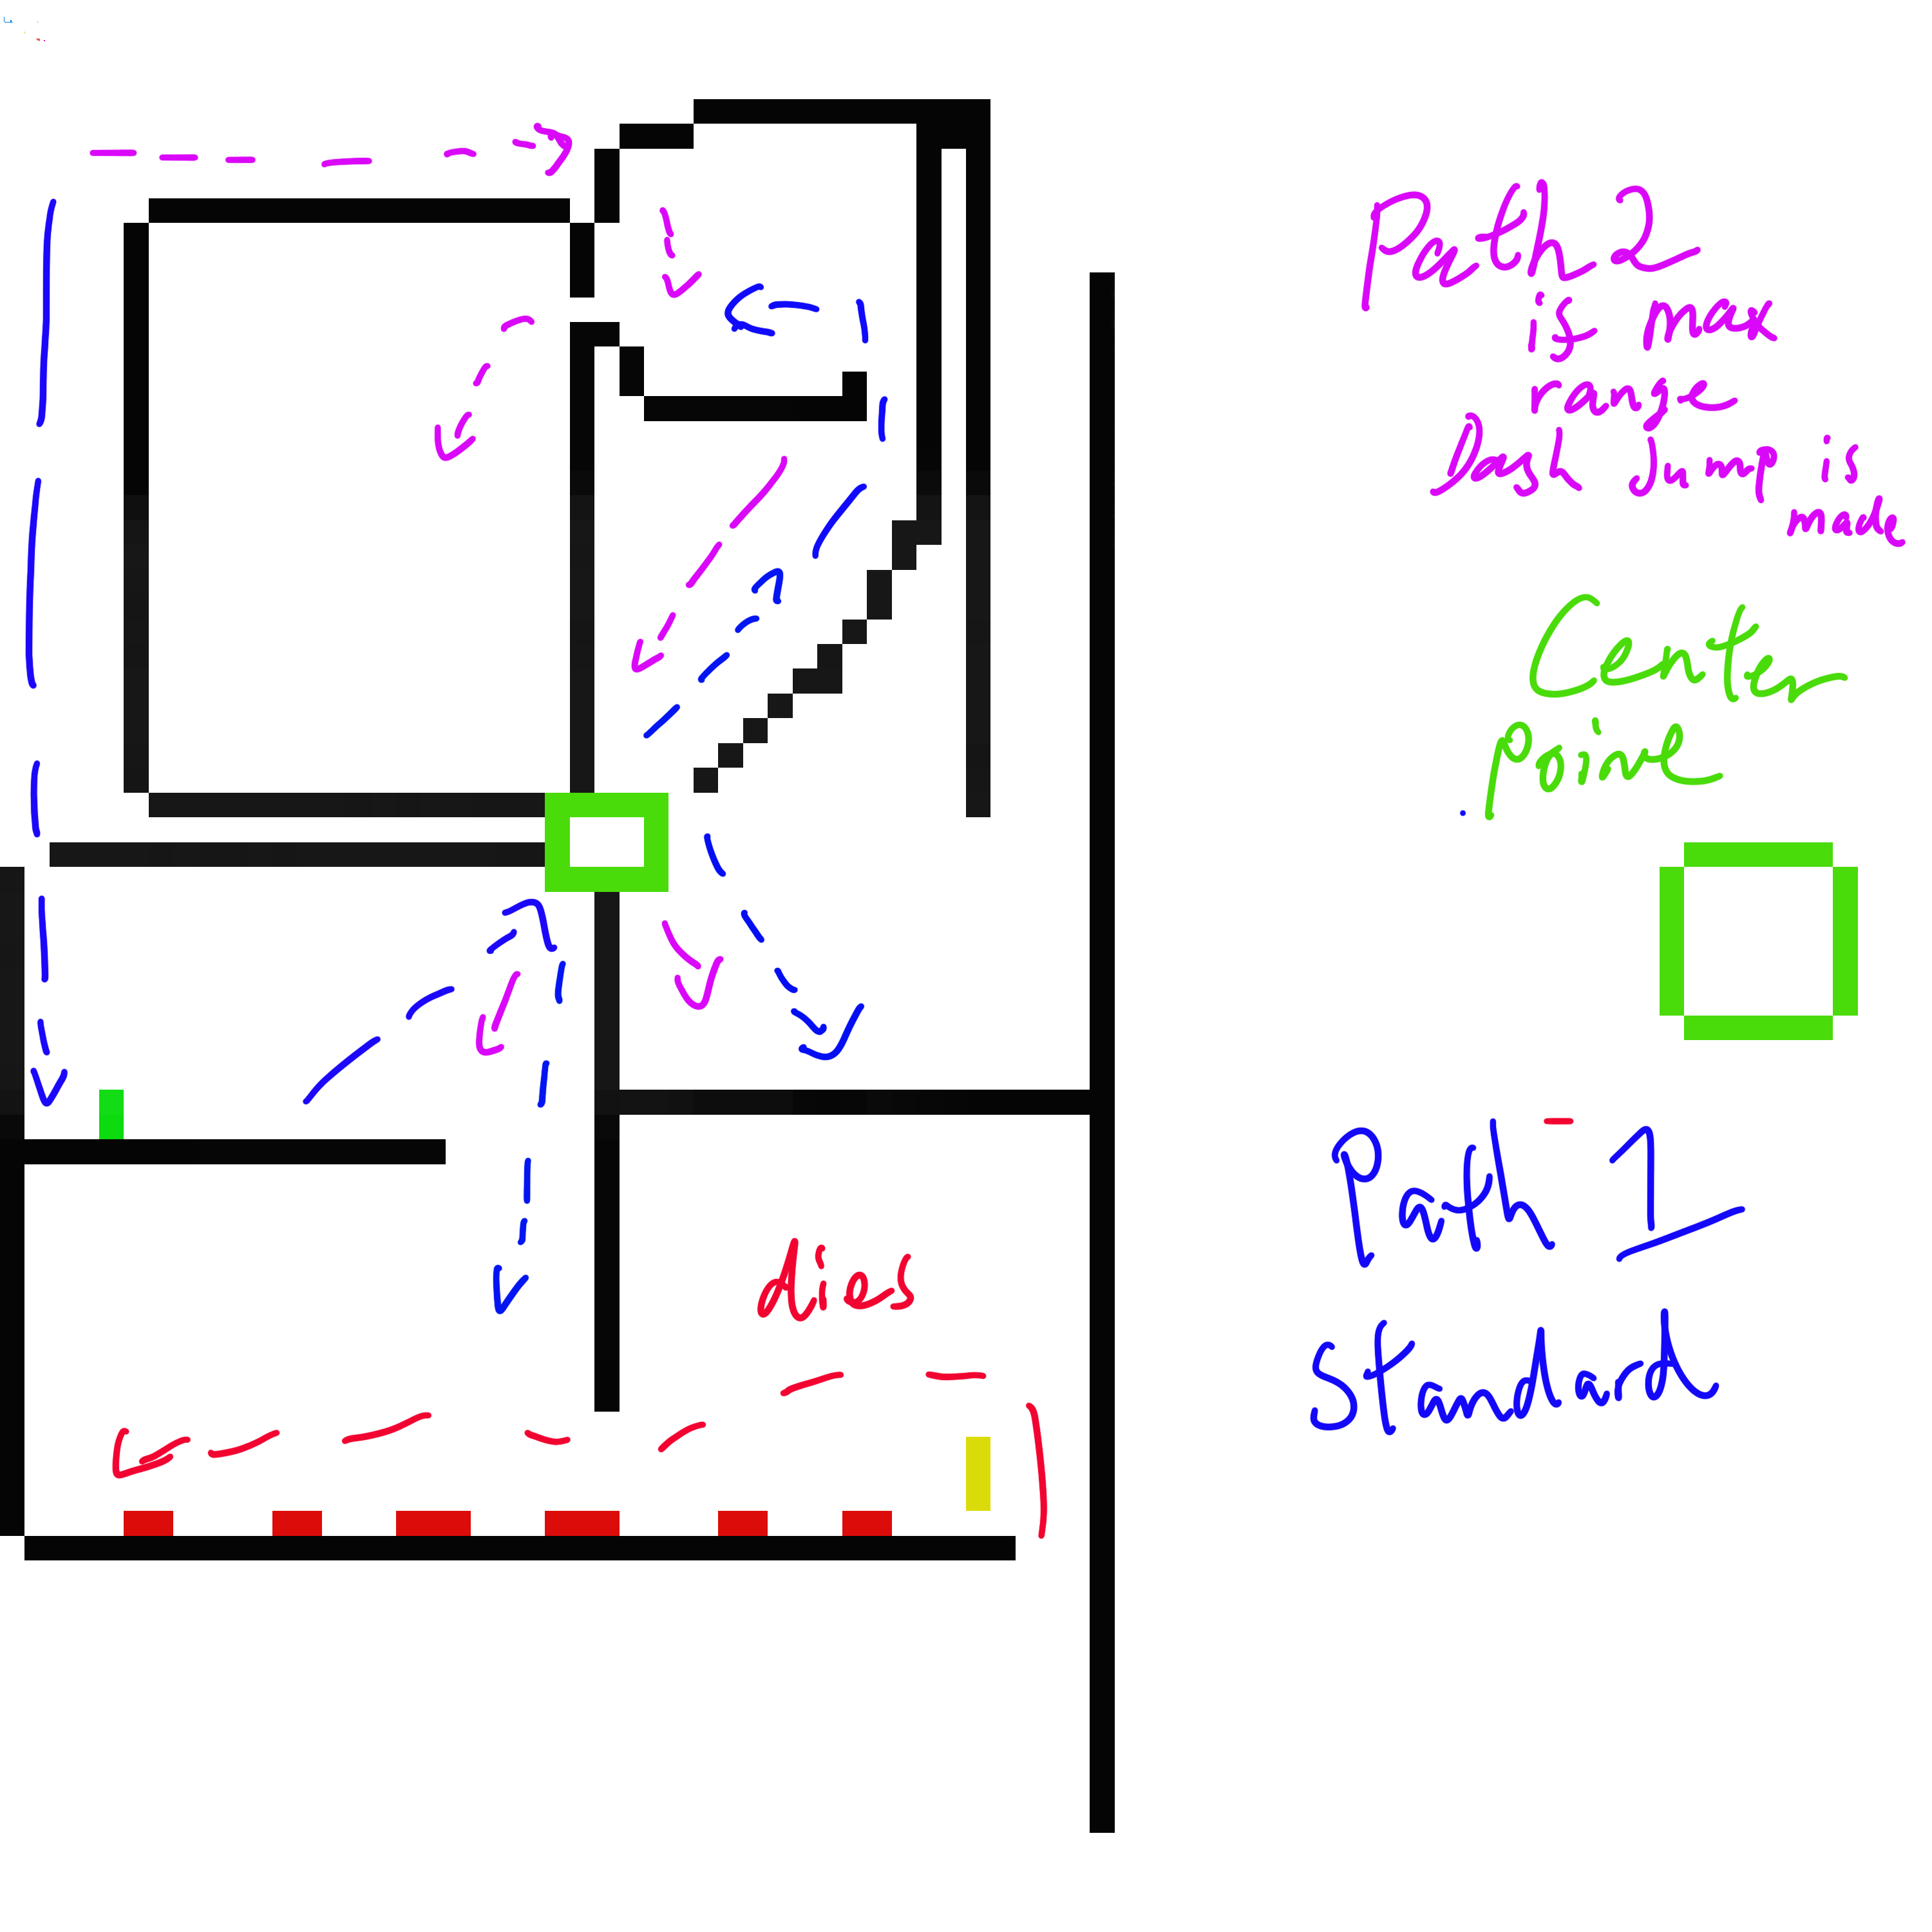 Path 2
is max
range
Dash Jump is
made
Center
Point
Path 1
dies
Standard